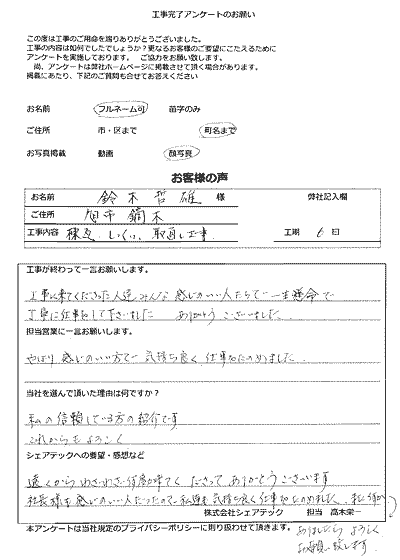 工事完了アンケートのお願い
この度は工事のご用命を賜りありがとうございました。
工事の内容は如何でしたでしょうか？更なるお客様のご要望にこたえるために
アンケートを実施しております。 ご協力をお願い致します。
尚、アンケートは弊社ホームページに掲載させて頂く場合があります。
掲載にあたり、下記のご質問も合せてお答えください
お名前 フルネーム可 苗字のみ
ご住所 市・区まで 町名まで
お写真掲載 動画 顔写真
お客様の声
お名前 鈴木哲雄 様 弊社記入欄
ご住所 旭市 鏑木
工事内容 棟瓦 しっくい 取直し工事 工期 6 日
工事が終わって一言お願いします。
工事に来てくださった人達みんな 感じのいい人たちで一生懸命で
丁寧に仕事をして下さいました ありがとうございました
担当営業に一言お願いします。
やはり 感じのいい方で 気持ち良く 仕事をたのめました
当社を選んで頂いた理由は何ですか？
私の信頼している方の紹介です
これからもよろしく
シェアテックへの要望・感想など
遠くからわざわざ何度か来てくださって ありがとうございます
社長様も感じのいい人だったので 私達も気持ち良く仕事をたのめました 又何か
株式会社シェアテック 担当 高木栄一
本アンケートは当社規定のプライバシーポリシーに則り扱わせて頂きます。
ありましたら よろしく
お願い致します